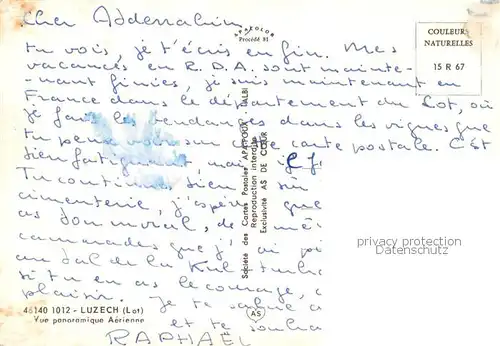 Cher Abderrahim
tu vois, je t'écris enfin. Mes
vacances en R.D.A. sont mainte-
-nant finies, je suis maintenant en
France dans le département du Lot, où
je fais les vendanges dans les vignes que
tu peux voir sur cette carte postale. C'est
bien fatigant, mais
Tu continues, bien sûr
cimenterie, j'espère que
as bon moral, de
camarades que j'ai
au bal de la
si tu en as le courage,
plaisir. Je te salue
et te souhai
RAPHAËL
APA-COLOR
Procédé 81
COULEURS
NATURELLES
15 R 67
Société des Cartes Postales APA-POUX - ALBI
Reproduction interdite
Exclusivité AS DE CŒUR
AS
46140 1012 - LUZECH (Lot)
Vue panoramique Aérienne
privacy protection
Datenschutz